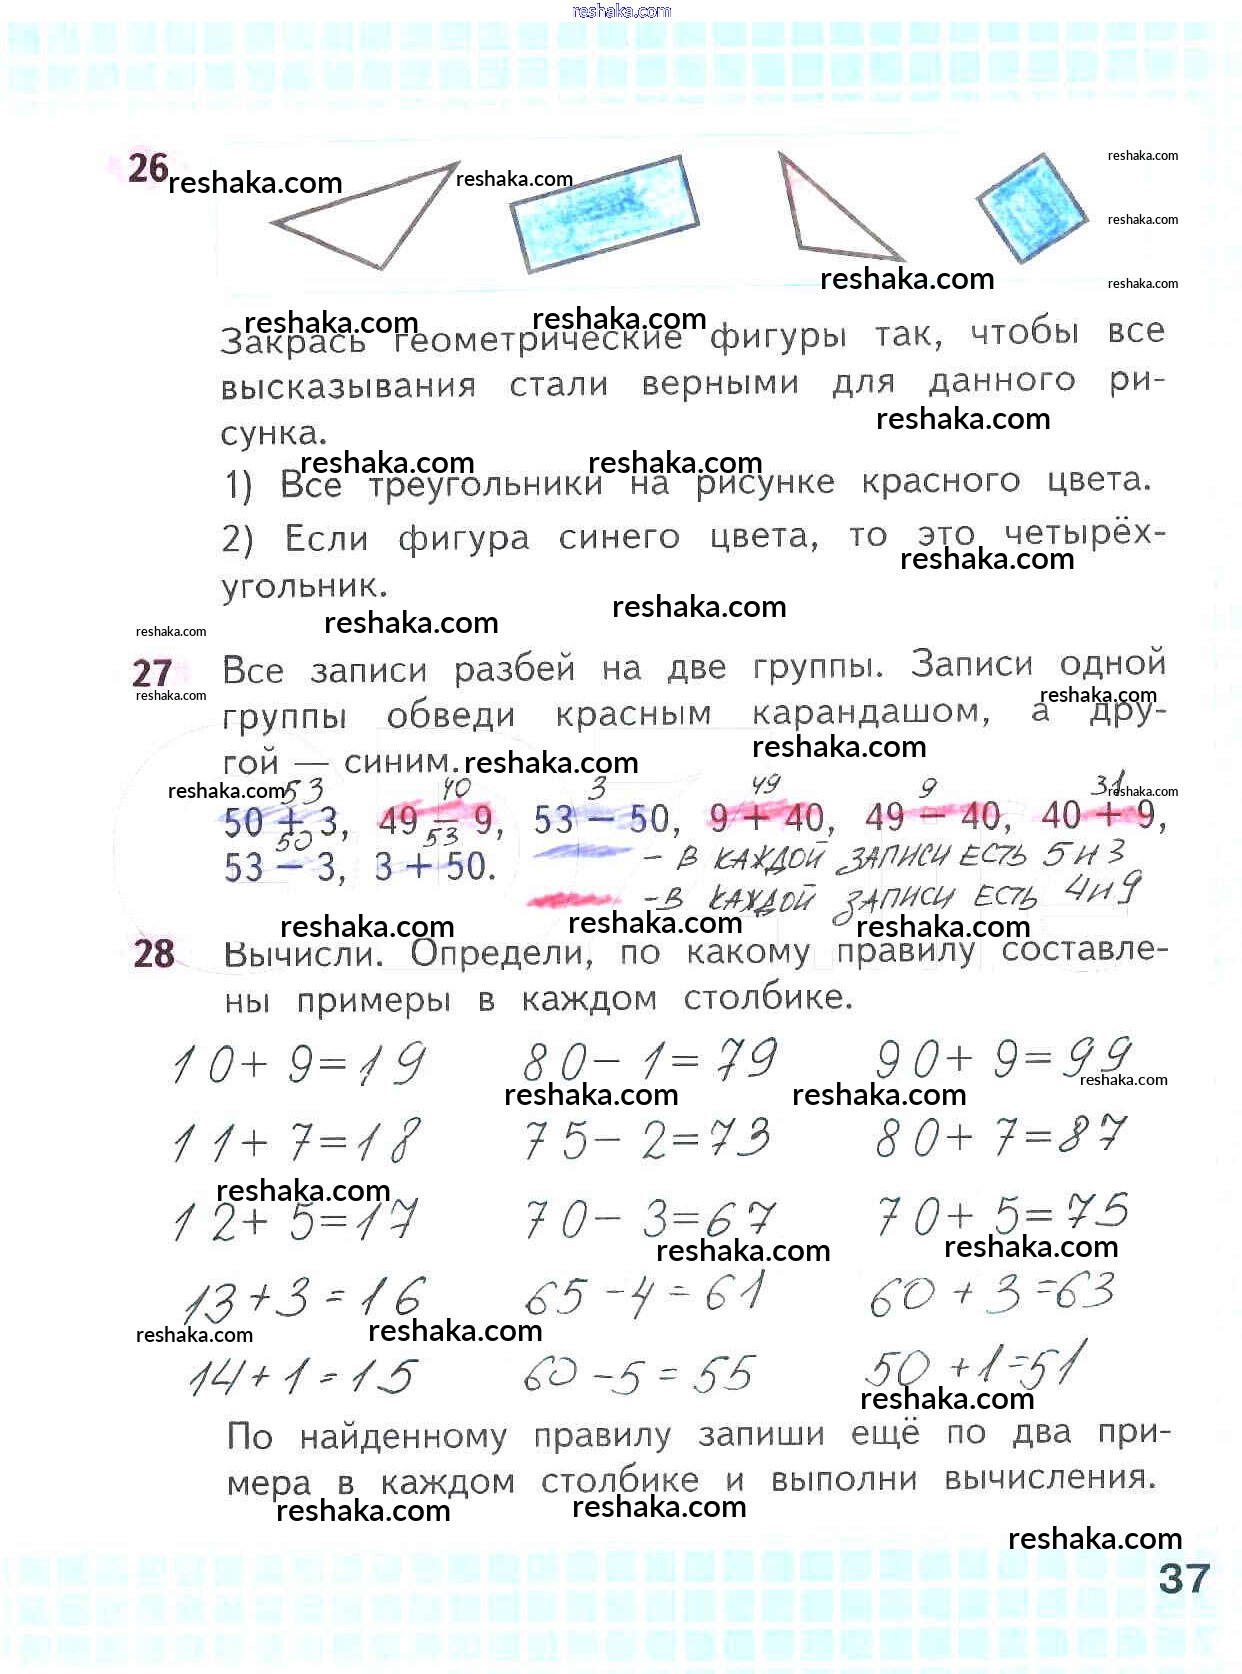 reshaka.com
26
reshaka.com
reshaka.com
reshaka.com
reshaka.com
reshaka.com
reshaka.com
reshaka.com
reshaka.com
Закрась геометрические фигуры так, чтобы все
высказывания стали верными для данного ри-
reshaka.com
сунка.
reshaka.com
reshaka.com
1) Все треугольники на рисунке красного цвета.
2) Если фигура синего цвета, то это четырёх-
reshaka.com
угольник.
reshaka.com
reshaka.com
reshaka.com
27 Все записи разбей на две группы. Записи одной
reshaka.com
reshaka.com
группы обведи красным карандашом, а дру-
reshaka.com
гой — синим.
reshaka.com
reshaka.com
53 40 3 49 9 31
reshaka.com
50 + 3, 49 − 9, 53 − 50, 9 + 40, 49 − 40, 40 + 9,
50 53
53 − 3, 3 + 50. - В КАЖДОЙ ЗАПИСИ ЕСТЬ 5 И 3
-В КАЖДОЙ ЗАПИСИ ЕСТЬ 4 И 9
reshaka.com
reshaka.com
reshaka.com
28 Вычисли. Определи, по какому правилу составле-
ны примеры в каждом столбике.
10+ 9=19 80− 1=79 90+ 9=99
reshaka.com
reshaka.com
reshaka.com
11+ 7=18 75− 2=73 80+ 7=87
reshaka.com
12+ 5=17 70− 3=67 70+ 5=75
reshaka.com
reshaka.com
13+3=16 65-4=61 60+3=63
reshaka.com
reshaka.com
14+1=15 60-5=55 50+1=51
reshaka.com
По найденному правилу запиши ещё по два при-
мера в каждом столбике и выполни вычисления.
reshaka.com
reshaka.com
reshaka.com
37